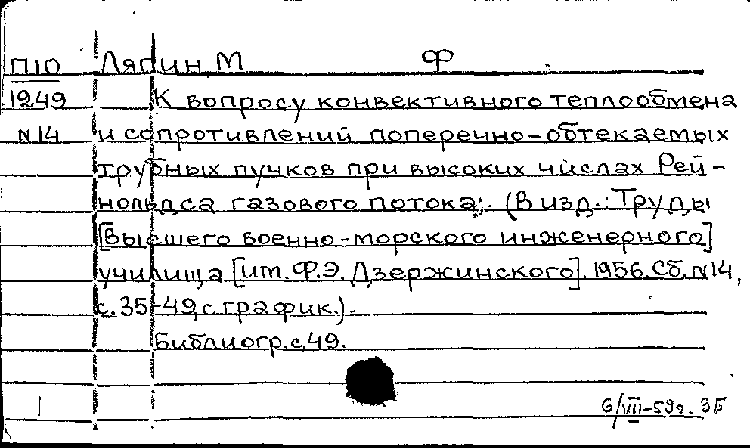 П10 Ляпин М Ф
1249 К вопросу конвективного теплообмена
N14 и сопротивлений поперечно-обтекаемых
трубных пучков при высоких числах Рей-
нольдса газового потока. (В изд.: Труды
[высшего военно-морского инженерного]
училища [им. Ф.Э. Дзержинского]. 1956. Сб. N14,
с. 35-49, с график.).
Библиогр. с. 49.
6/VIII-59г. ЗБ